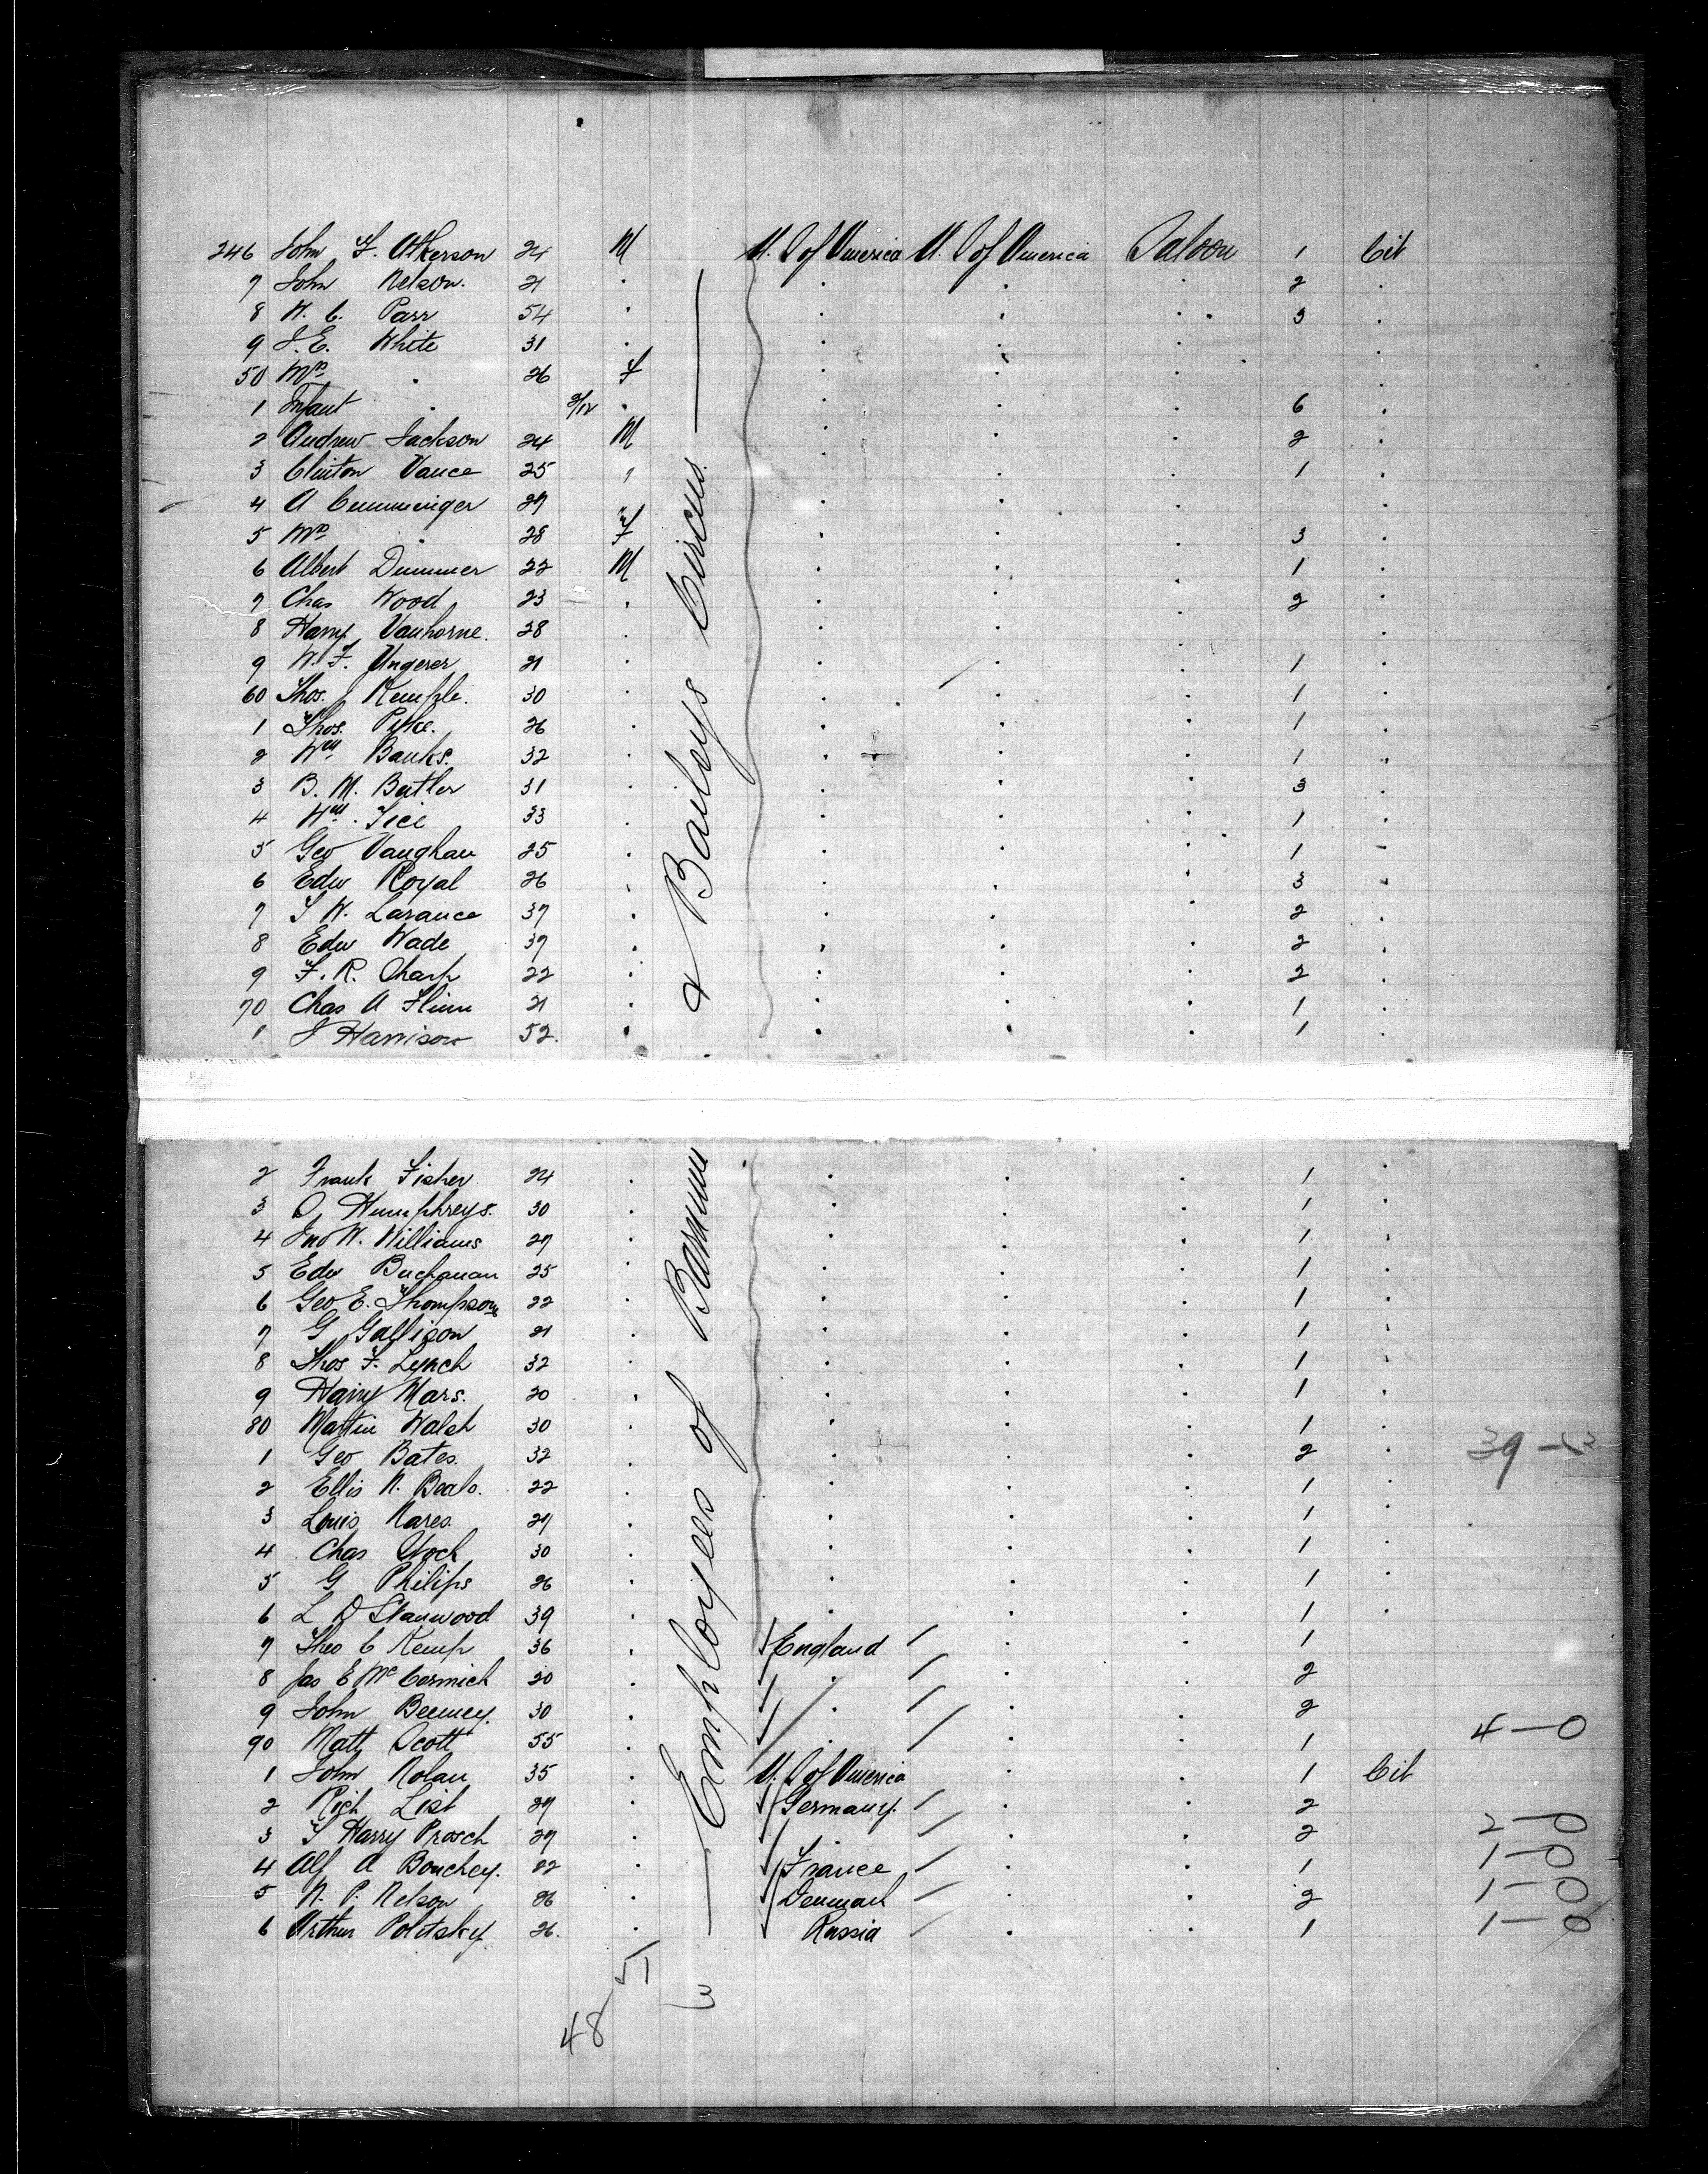 246 John F. Atkerson 24 M U. S of America U. S of America Saloon 1 Cit
7 John Nelson. 21 . . . . 2 .
8 W. C. Parr 54 . . . . 3 .
9 J. E. White 31 . . . . .
50 Mrs . 26 F . . . .
1 Infant . 3/12 . . . . 6 .
2 Andrew Jackson 24 M . . . 2 .
3 Clinton Vance 25 " . . . 1 .
4 A Cummeinger 27 " . . . .
5 Mrs . 28 F . . . 3 .
6 Albert Dummer 22 M . . . 1 .
7 Chas Wood 23 . . . . 2 .
8 Harry Vanhorne. 28 . . . . .
9 W. F. Ungerer 21 . . . . 1 .
60 Thos. J Kemple. 30 . . . . 1 .
1 Thos. Pyke. 26 . . . . 1 .
2 Wm Banks. 32 . . . . 1 .
3 B. M. Butler 31 . . . . 3 .
4 Wm. Tice 33 . . . . 1 .
5 Geo Vaughan 25 . . . . 1 .
6 Edw Royal 26 . . . . 3 .
7 S W. Larance 37 . . . . 2 .
8 Edw Wade 37 . . . . 2 .
9 F. R. Sharp 22 . . . . 2 .
70 Chas A Flinn 21 . . . . 1 .
1 J Harrison 52. . . . . 1 .
2 Frank Fisher 24 . . . . 1 .
3 O. Humphreys. 30 . . . . 1 .
4 Jno W. Williams 27 . . . . 1 .
5 Edw Buchanan 25 . . . . 1 .
6 Geo E. Thompson 22 . . . . 1 .
7 G Gallison 21 . . . . 1 .
8 Thos F. Lynch 32 . . . . 1 .
9 Harry Mars. 20 . . . . 1 .
80 Martin Walsh 30 . . . . 1 .
1 Geo Bates. 32 . . . . 2 . 39 -
2 Ellis N. Beals. 22 . . . . 1 .
3 Louis Nares. 27 . . . . 1 .
4 Chas Stock 30 . . . . 1 .
5 G Philips 26 . . . . 1 .
6 L D Stanwood 39 . . . . 1 .
7 Theo C Kemp 36 . England . . 1
8 Jas E McCormick 20 . . . . 2
9 John Beemey. 30 . . . . 2
90 Matt Scott 55 . . . . 1 4 — 0
1 John Nolan 35 . U. S of America . . 1 Cit
2 Rich List 27 . Germany. . . 2
3 S Harry Prosch 27 . . . 2 2 — 0
4 Alf A Bouchey. 22 . France . . 1 1 — 0
5 N. P. Nelson 26 . Denmark . . 2 1 — 0
6 Arthur Poldsky 26. . Russia . . 1 1 — 0
— Employees of Barnum & Baileys Circus. —
48
51
3